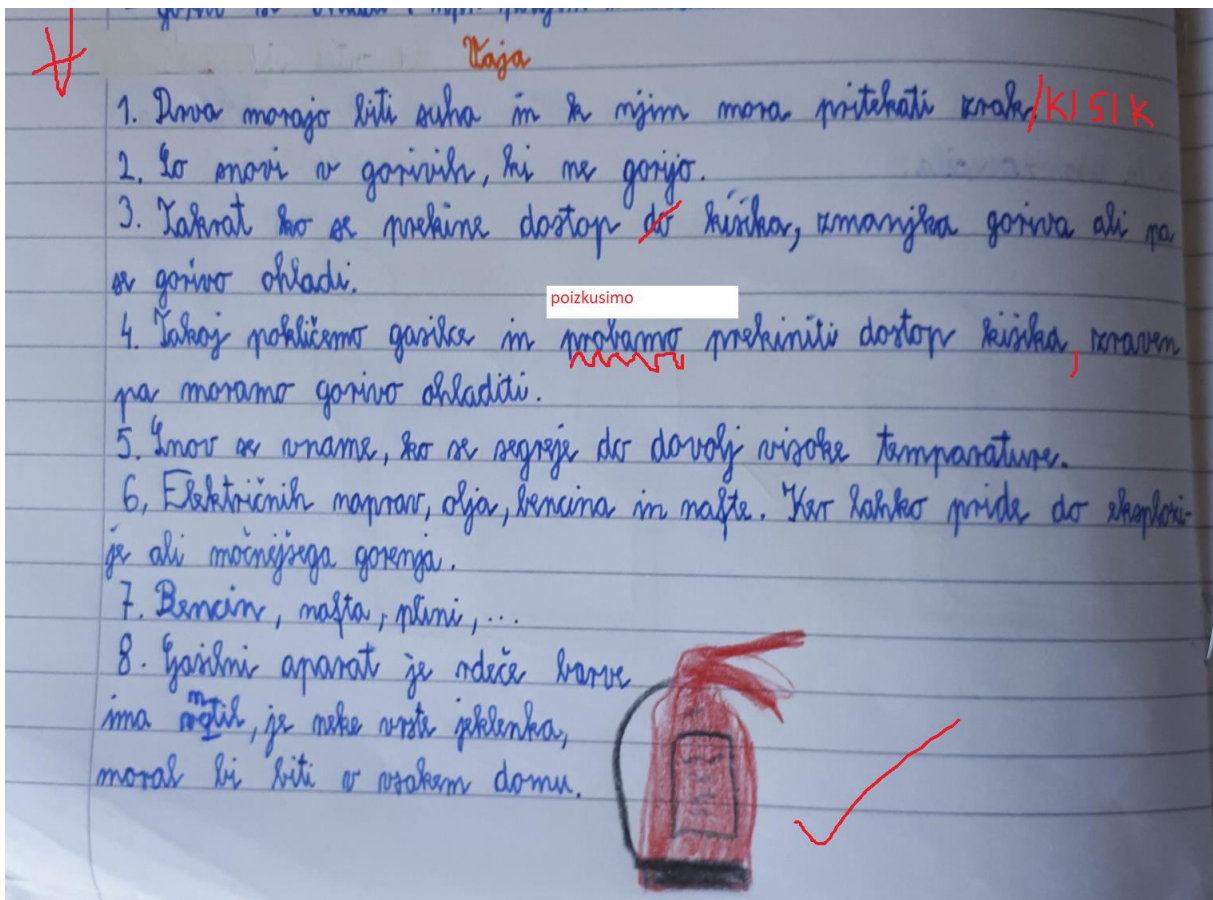 Vaja
1. Drva morajo biti suha in k njim mora pritekati zrak/KISIK
2. So snovi v gorivih, ki ne gorijo.
3. Takrat ko se prekine dostop do kisika, zmanjka goriva ali pa
se gorivo ohladi.
poizkusimo
4. Takoj pokličemo gasilce in probamo prekiniti dostop kisika, zraven
pa moramo gorivo ohladiti.
5. Snov se vname, ko se segreje do dovolj visoke temparature.
6. Električnih naprav, olja, bencina in nafte. Ker lahko pride do eksplozi-
je ali močnejšega gorenja.
7. Bencin, nafta, plini, ...
8. Gasilni aparat je rdeče barve
ima, je neke vrste jeklenka,
moral bi biti v vsakem domu.